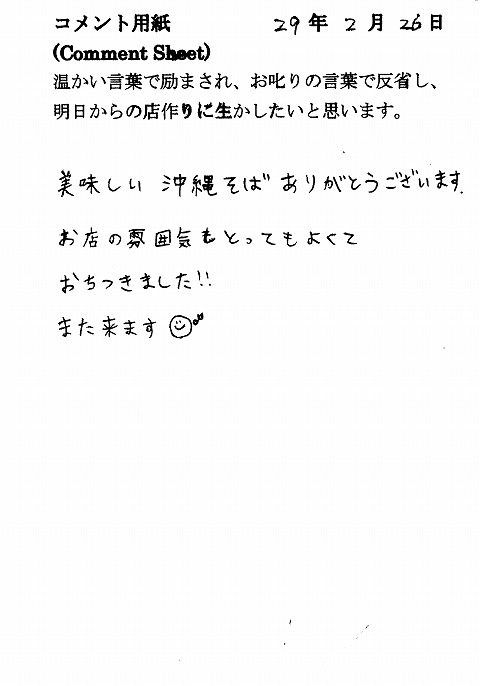 コメント用紙 29年 2月 26日
(Comment Sheet)
温かい言葉で励まされ、お叱りの言葉で反省し、
明日からの店作りに生かしたいと思います。
美味しい 沖縄そば ありがとうございます.
お店の雰囲気もとってもよくて
おちつきました!!
また来ます